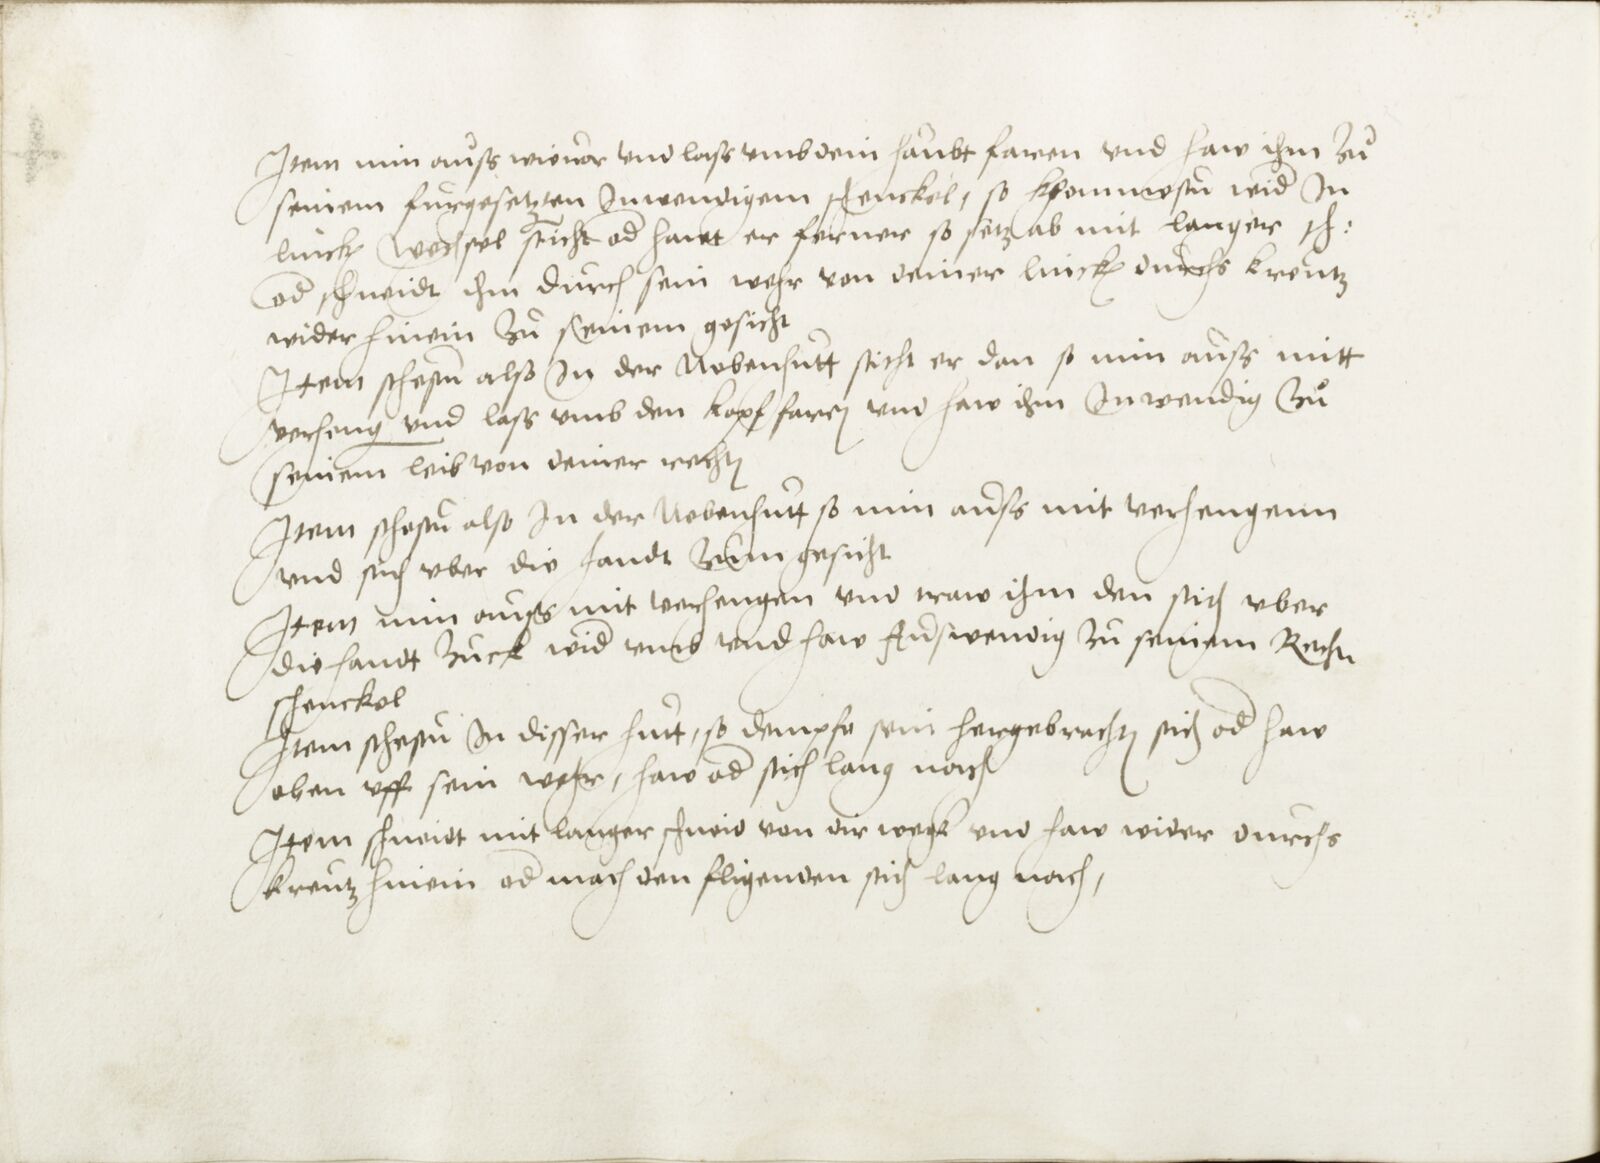 Item nim auss wie vor vnd lass vmb dein haubt faren vnd haw ihm zu
seinem furgesetzten Inwendigem schenckel, so kommestu wid In
linck wechsel sticht od hawt er ferner so setz ab mit langer sch:
od schneidt ihm durch sein wehr von deiner linck durchs kreutz
wider hinein zu seinem gesicht
Item stehestu also In der Nebenhutt sticht er dan so nim auss mitt
verheng vnd lass vmb den kopf faren vnd haw ihm Inwendig zu
seinem leib von deiner rechten
Item stehestu also In der Nebenhutt so nim auss mit verhengenn
vnd stich vber die handt zum gesicht
Item nim auss mit verhengen vnd traw ihm den stich vber
die handt zuck wid vmb vnd haw Auswendig zu seinem Rechten
schenckel
Item stehestu In disser hutt, so dempfe sein hergebrachten stich od haw
oben vff sein wehr, haw od stich lang nach
Item schneidt mit langer schneid von dir wegk vnd haw wider durchs
kreutz hinein od mach den fligenden stich lang nach,